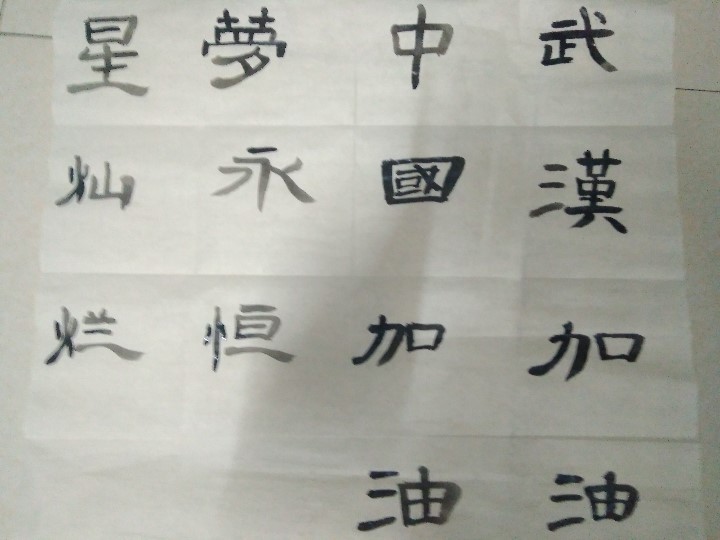 武漢加油
中國加油
夢永恒
星灿烂